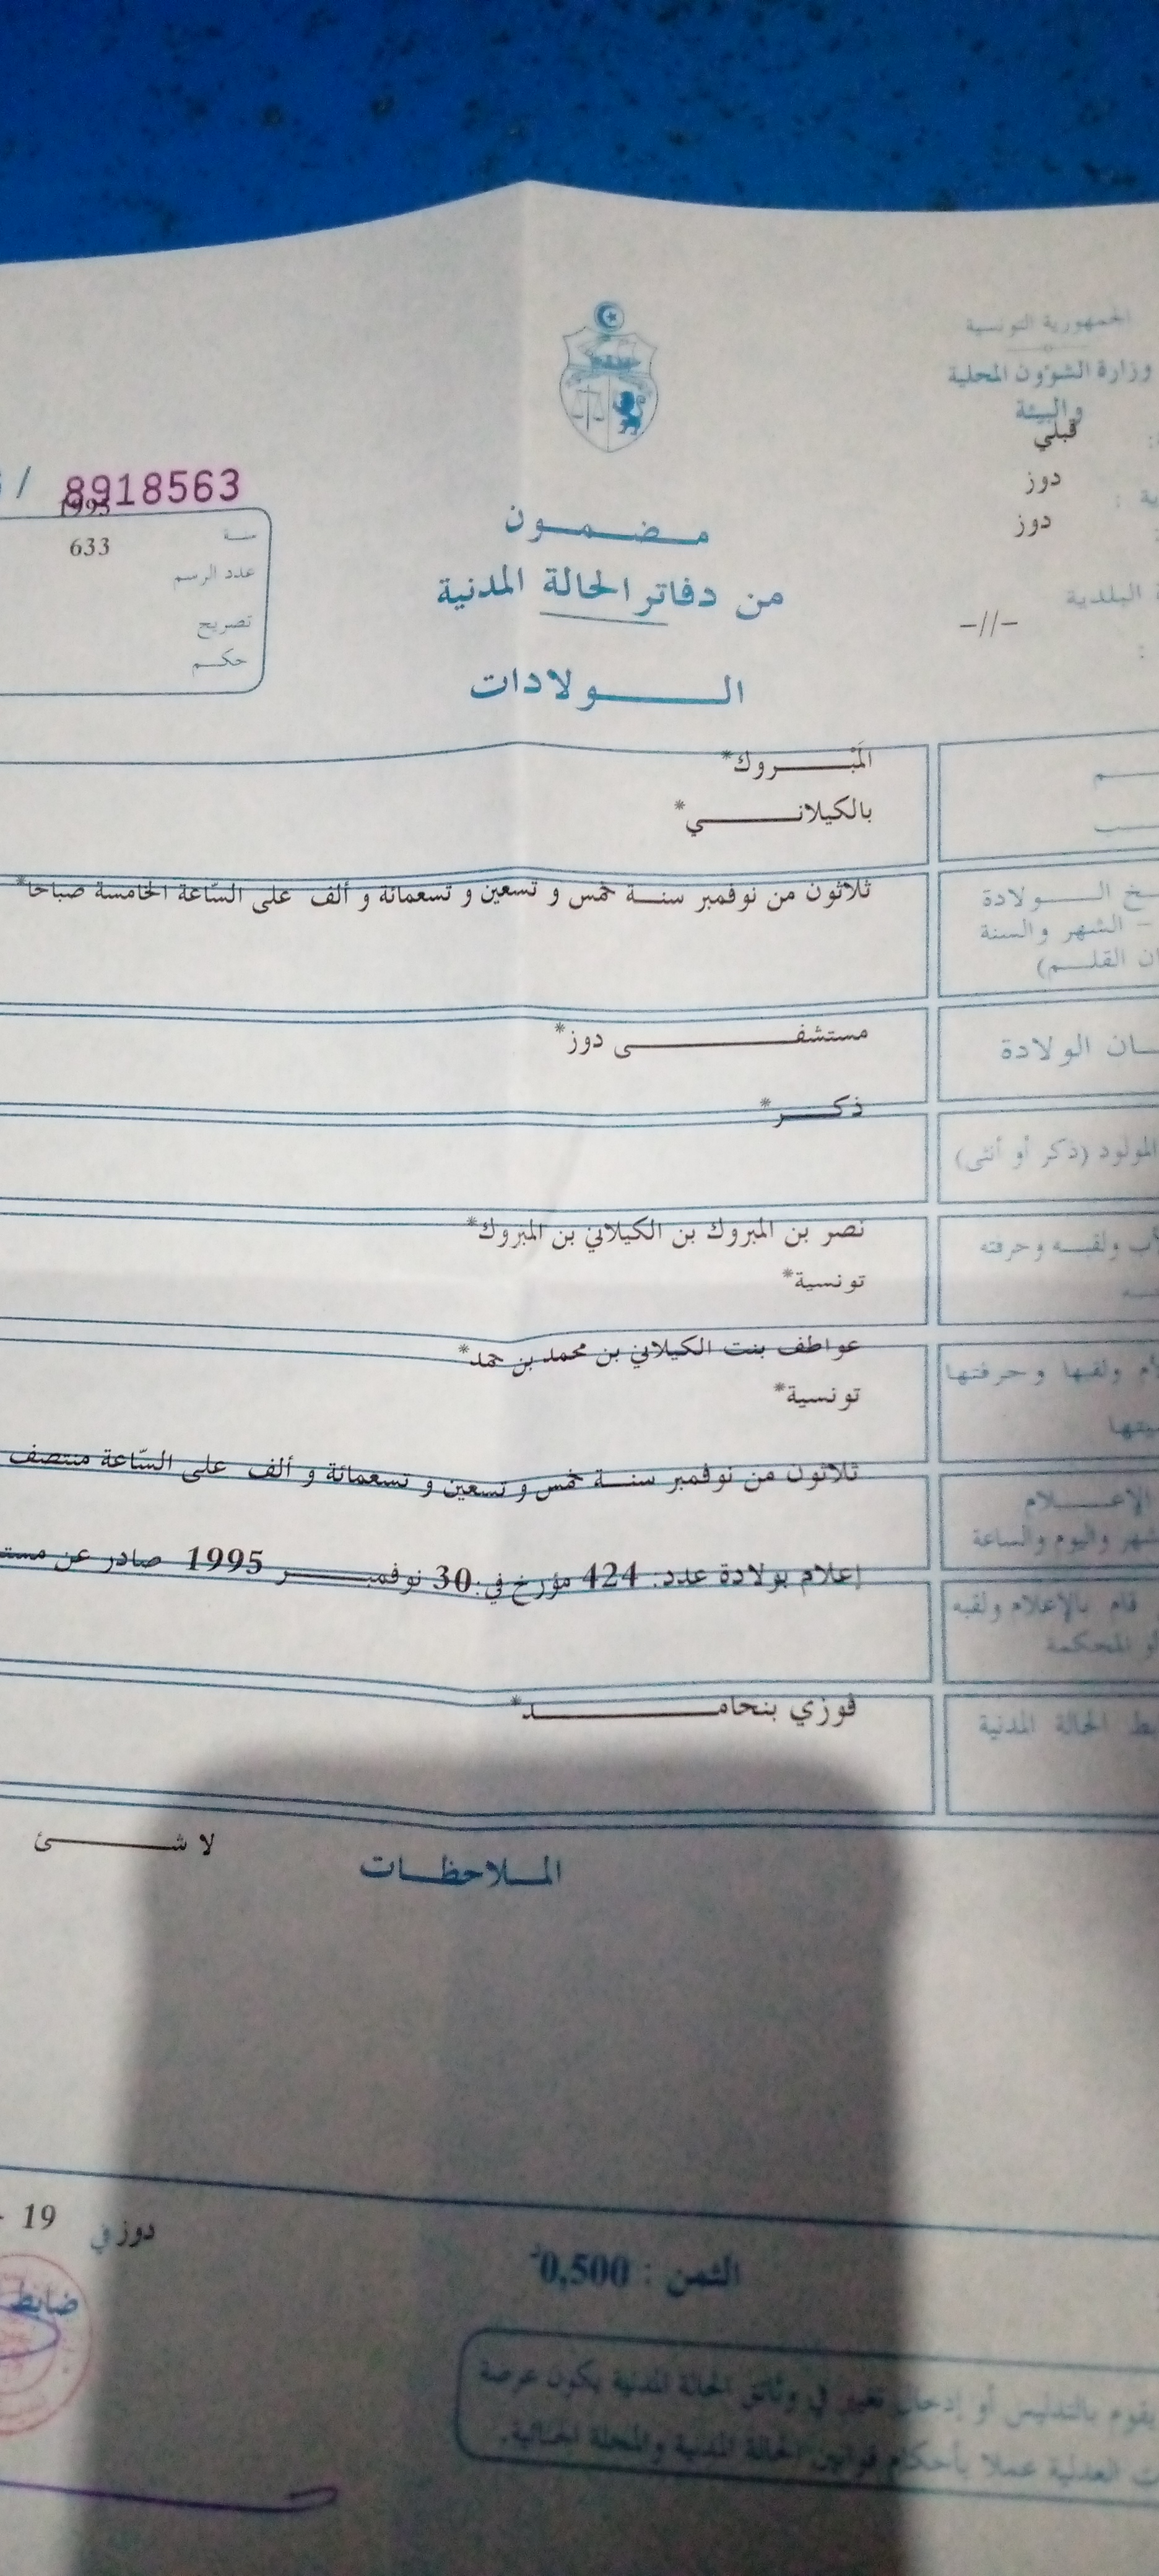 الجمهورية التونسية
وزارة الشؤون المحلية
والبيئة
قبلي
دوز
دوز
البلدية
-//-
/ 8918563
1995
سنة
633
عدد الرسم
تصريح
حكم
مضمون
من دفاتر الحالة المدنية
الولادات
المَبْروك*
بالكيلاني*
الولادة
- الشهر والسنة
القلم)
ثلاثون من نوفمبر سنة خمس و تسعين و تسعمائة و ألف على السّاعة الخامسة صباحا*
الولادة
مستشفى دوز*
المولود (ذكر أو أنثى)
ذكر*
ولقبه وحرفته
نصر بن المبروك بن الكيلاني بن المبروك*
تونسية*
ولقبها وحرفتها
عواطف بنت الكيلاني بن محمد بن حمد*
تونسية*
الإعلام
واليوم والساعة
ثلاثون من نوفمبر سنة خمس و تسعين و تسعمائة و ألف على السّاعة منتصف
قام بالإعلام ولقبه
أو المحكمة
إعلام بولادة عدد: 424 مؤرخ في: 30 نوفمبر 1995 صادر عن
الحالة المدنية
فوزي بنحامد*
الملاحظات
لا شئ
دوز في 19
ضابط
الثمن : 0,500
يقوم بالتدليس أو إدخال تغيير في وثائق الحالة المدنية يكون عرضة
العدلية عملا بأحكام قوانين الحالة المدنية والمجلة الجنائية.